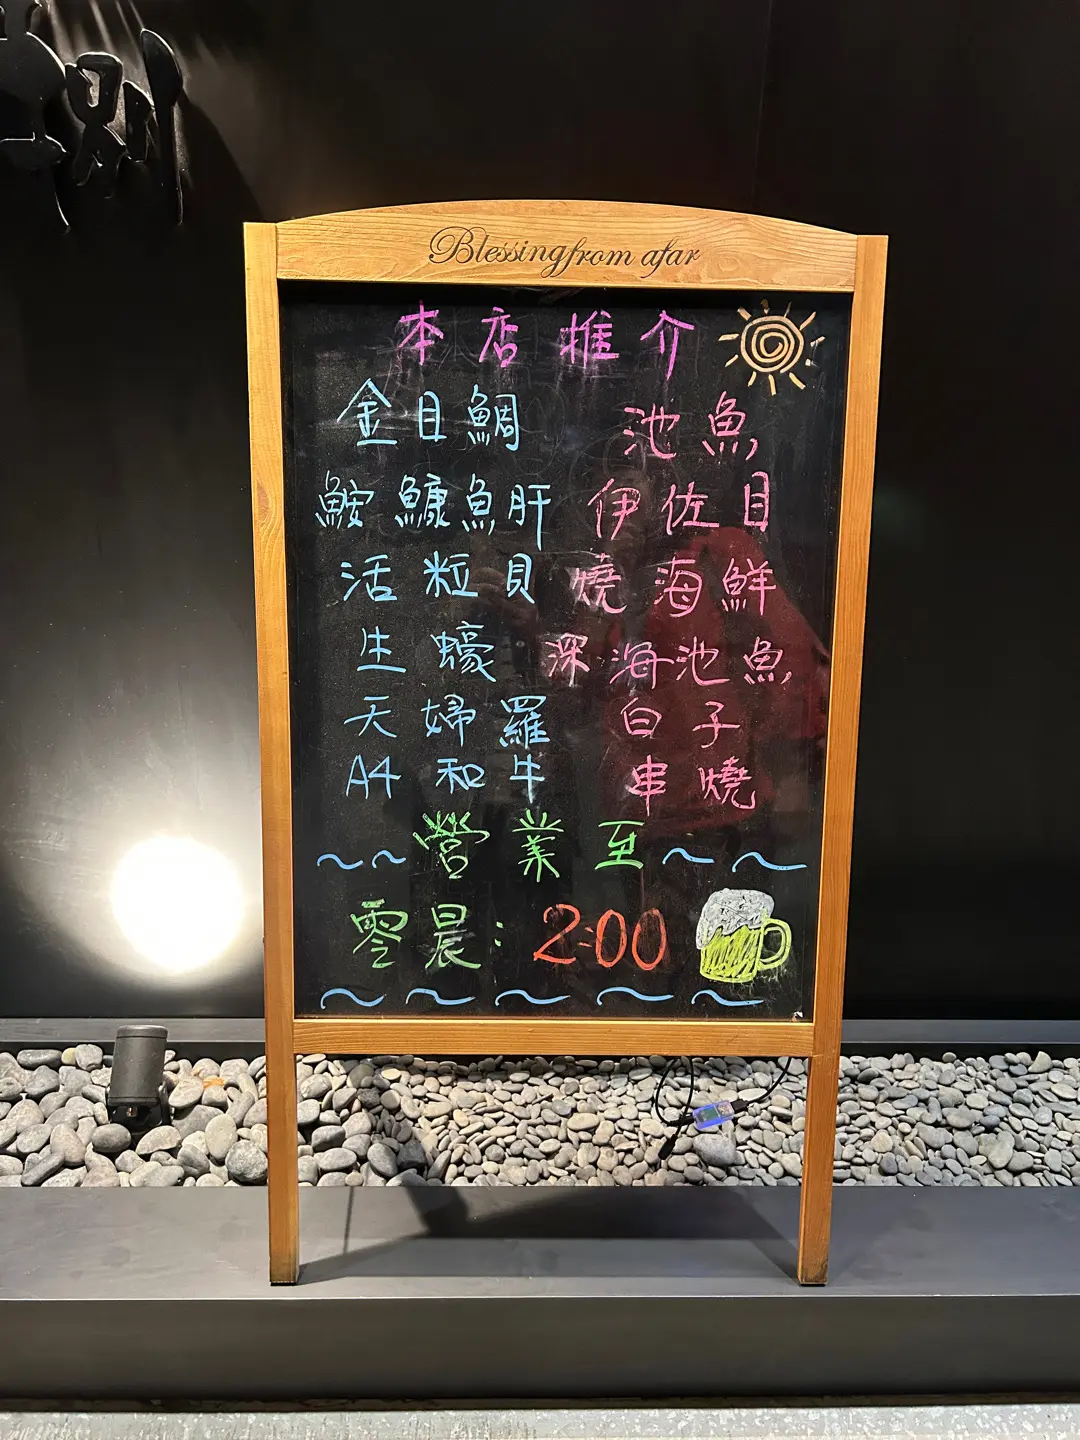 Blessing from afar
本店推介
金目鯛 池魚
鮟鱇魚肝 伊佐目
活粒貝 燒海鮮
生蠔 深海池魚
天婦羅 白子
A4和牛 串燒
營業至
零晨：2:00